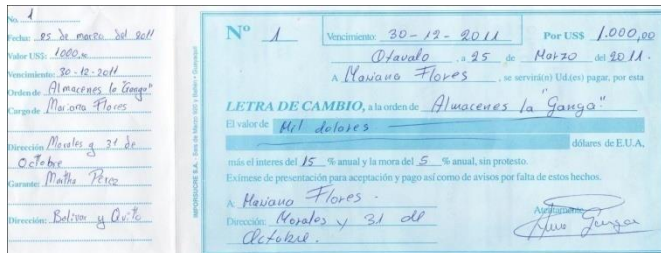 No. 1
Fecha: 25 de marzo del 2011
Valor US$: 1000,00
Vencimiento: 30-12-2011
Orden de Almacenes la "Ganga"
Cargo de Mariana Flores
Dirección Morales y 31 de
Octubre
Garante: Martha Pérez
Dirección: Bolivar y Quito
IMPORSUCRE S.A.
Nº 1 Vencimiento: 30-12-2011 Por US$ 1.000,00
Otavalo, a 25 de Marzo del 2011.
A Mariana Flores, se servirá(n) Ud.(es) pagar, por esta
LETRA DE CAMBIO, a la orden de Almacenes la "Ganga"
El valor de Mil dolares
dólares de E.U.A,
más el interes del 15 % anual y la mora del 5 % anual, sin protesto.
Exímese de presentación para aceptación y pago así como de avisos por falta de estos hechos.
A: Mariana Flores.
Dirección: Morales y 31 de Atentamente,
Octubre.